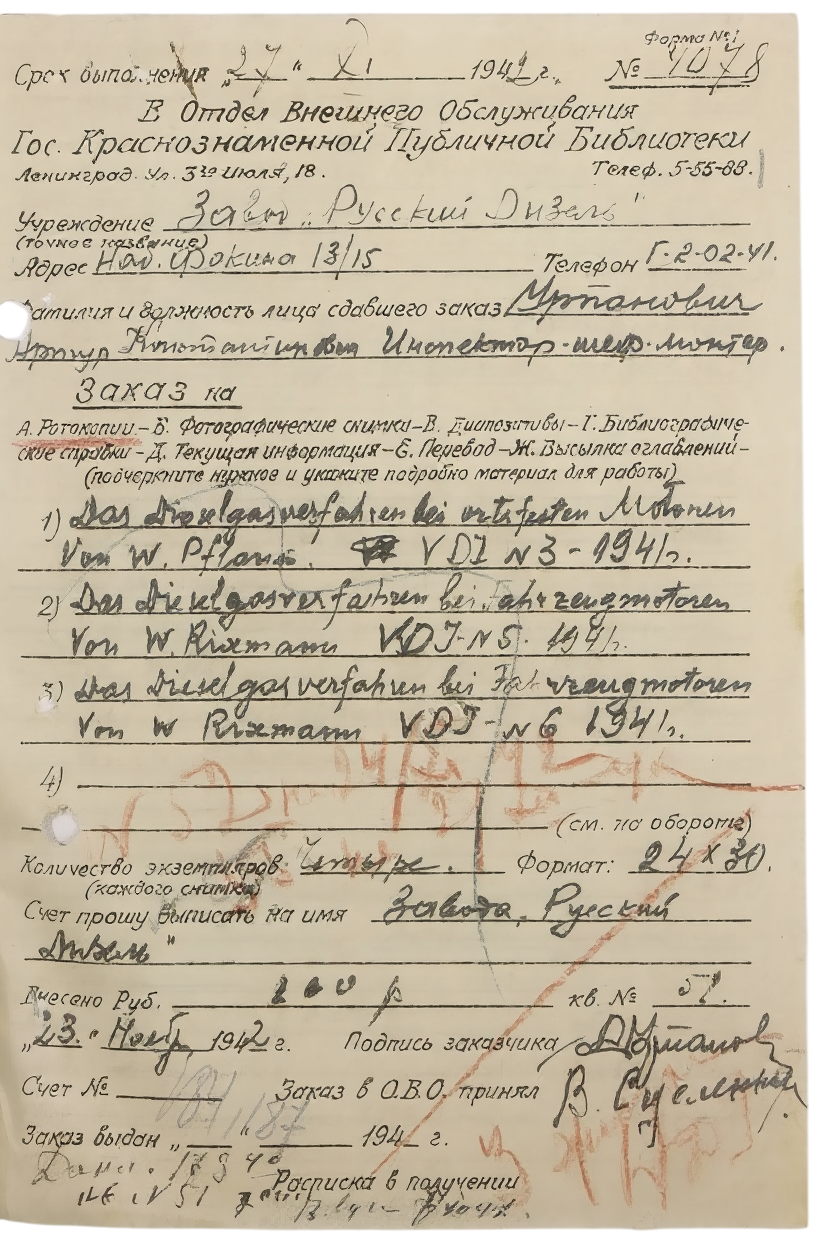 Форма №1
Срок выполнения „27" XI 194 г. № 4078
В Отдел Внешнего Обслуживания
Гос. Краснознаменной Публичной Библиотеки
Ленинград. Ул. 3го Июля, 18. Телеф. 5-55-88.
Учреждение Завод „Русский Дизель"
(точное название)
Адрес Наб. Фокина 13/15 Телефон Г-2-02-41.
Фамилия и должность лица сдавшего заказ Урпанович
Артур Константинович Инспектор-шеф-монтер.
Заказ на
А. Фотокопии.–Б. Фотографические снимки–В. Диапозитивы–Г. Библиографиче-
ские справки–Д. Текущая информация–Е. Перевод–Ж. Высылка оглавлений–
(подчеркните нужное и укажите подробно материал для работы)
1) Das Dieselgasverfahren bei ortsfesten Motoren
Von W. Pflaum. VDI N 3 - 1941г.
2) Das Dieselgasverfahren bei Fahrzeugmotoren
Von W. Rixmann VDI-N 5. 1941г.
3) Das Dieselgasverfahren bei Fahrzeugmotoren
Von W Rixmann VDI-N 6 1941г.
4)
(см. на обороте)
Количество экземпляров Четыре. Формат: 24 х 30.
(каждого снимка)
Счет прошу выписать на имя Завода, Русский
Дизель"
Внесено Руб. 200 р кв. № 51.
„23." Ноябр 1942 г. Подпись заказчика
Счет № Заказ в О.В.О. принял В.
Заказ выдан „ " 194 г.
Расписка в получении